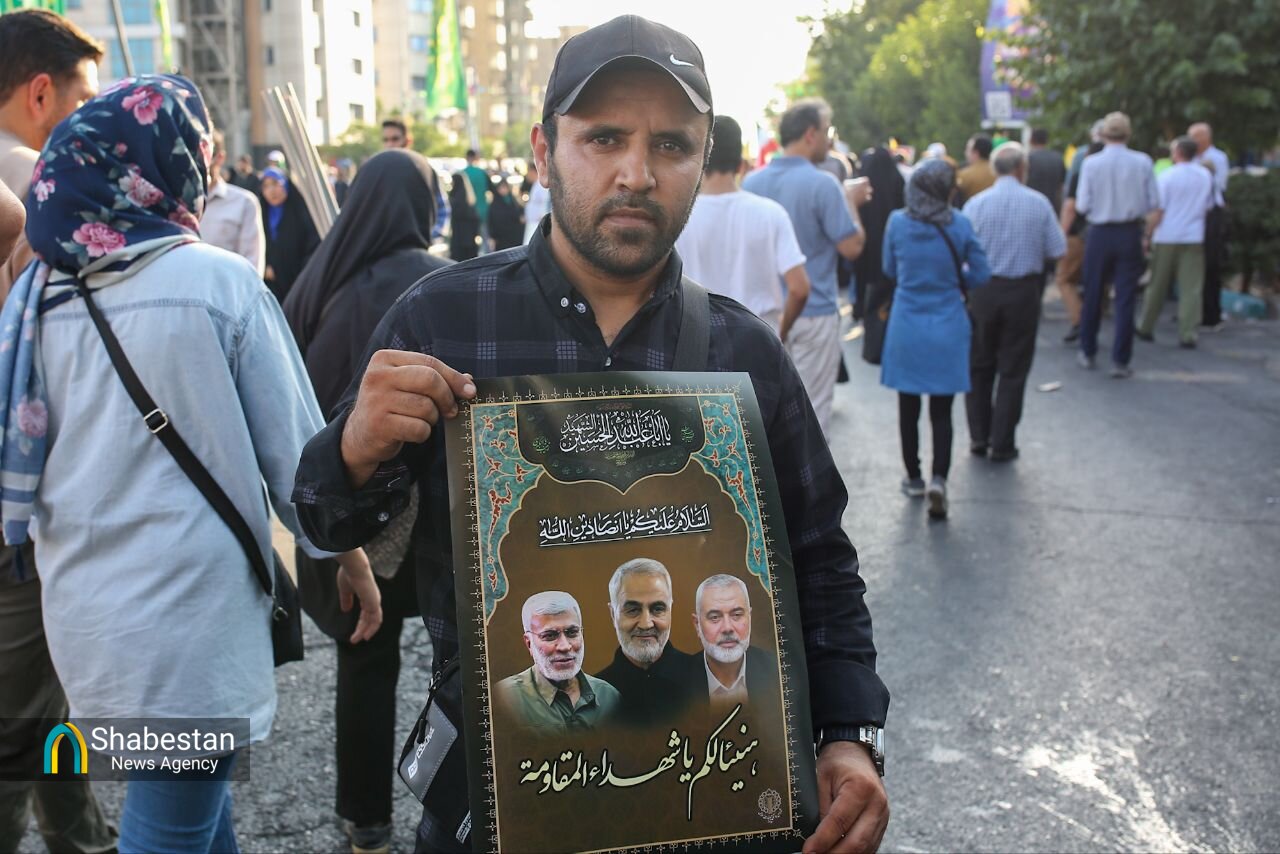 يا أبا عبد الله الحسين الشهيد
السَّلامُ عَلَيْكُمْ يَا أنصَارَ دِينِ اللَّهِ
هنيئا لكم يا شهداء المقاومة
Shabestan
News Agency